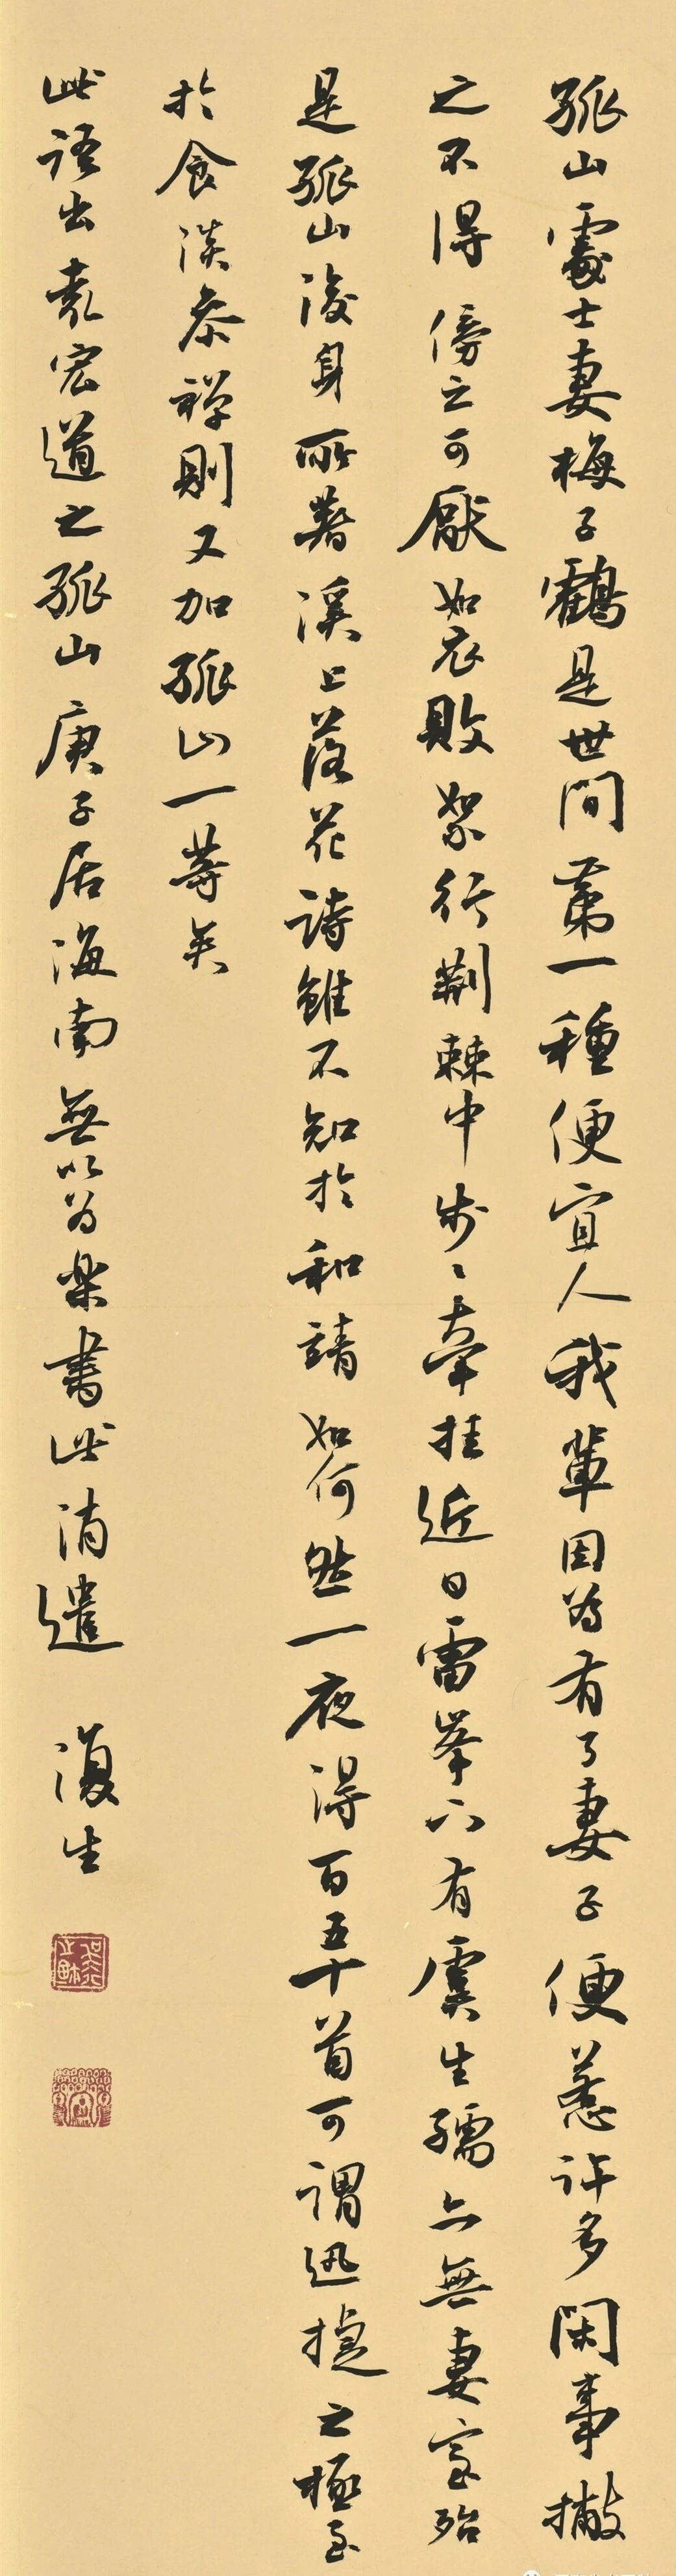 孤山處士妻梅子鶴是世間第一種便宜人我輩因為有了妻子便惹許多閑事撇
之不得傍之可厭如衣敗絮行荆棘中步〻牽挂近日雷峯下有虞生孺亦無妻室殆
是孤山後身所著溪上落花詩雖不知於和靖如何然一夜得百五十首可謂迅捷之極至
於食淡参禅則又加孤山一等矣
此語出袁宏道之孤山庚子居海南無以为樂書此消遣 復生